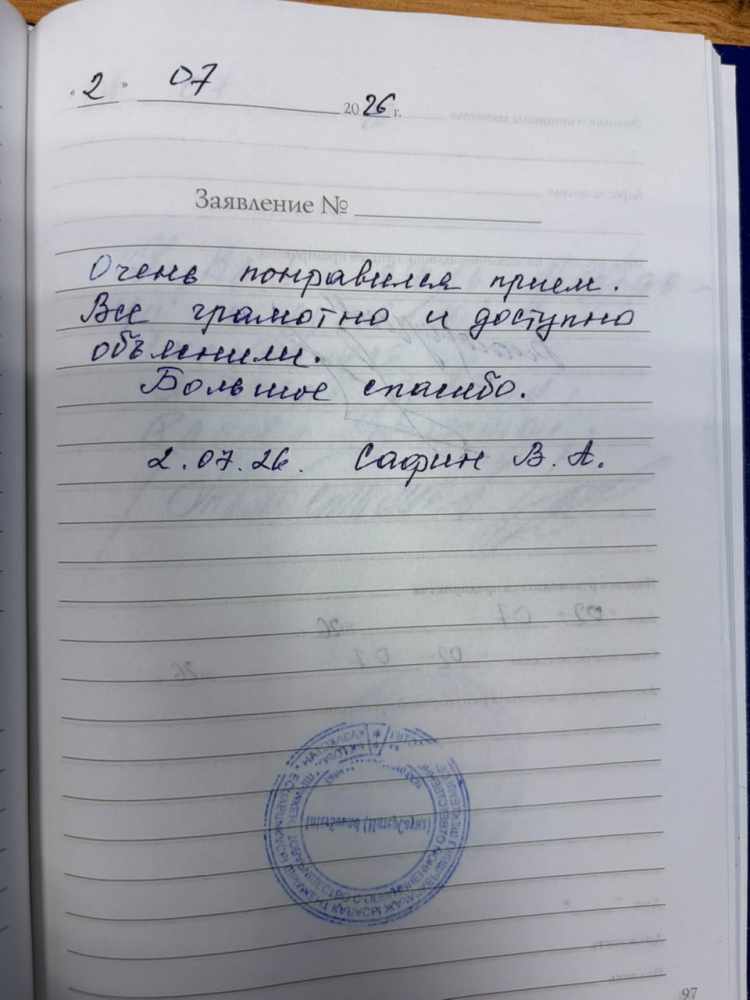 "2" 07 2026 г.
Заявление №
Очень понравился прием.
Все грамотно и доступно
объяснили.
Большое спасибо.
2.07.26. Сафин В. А.
97